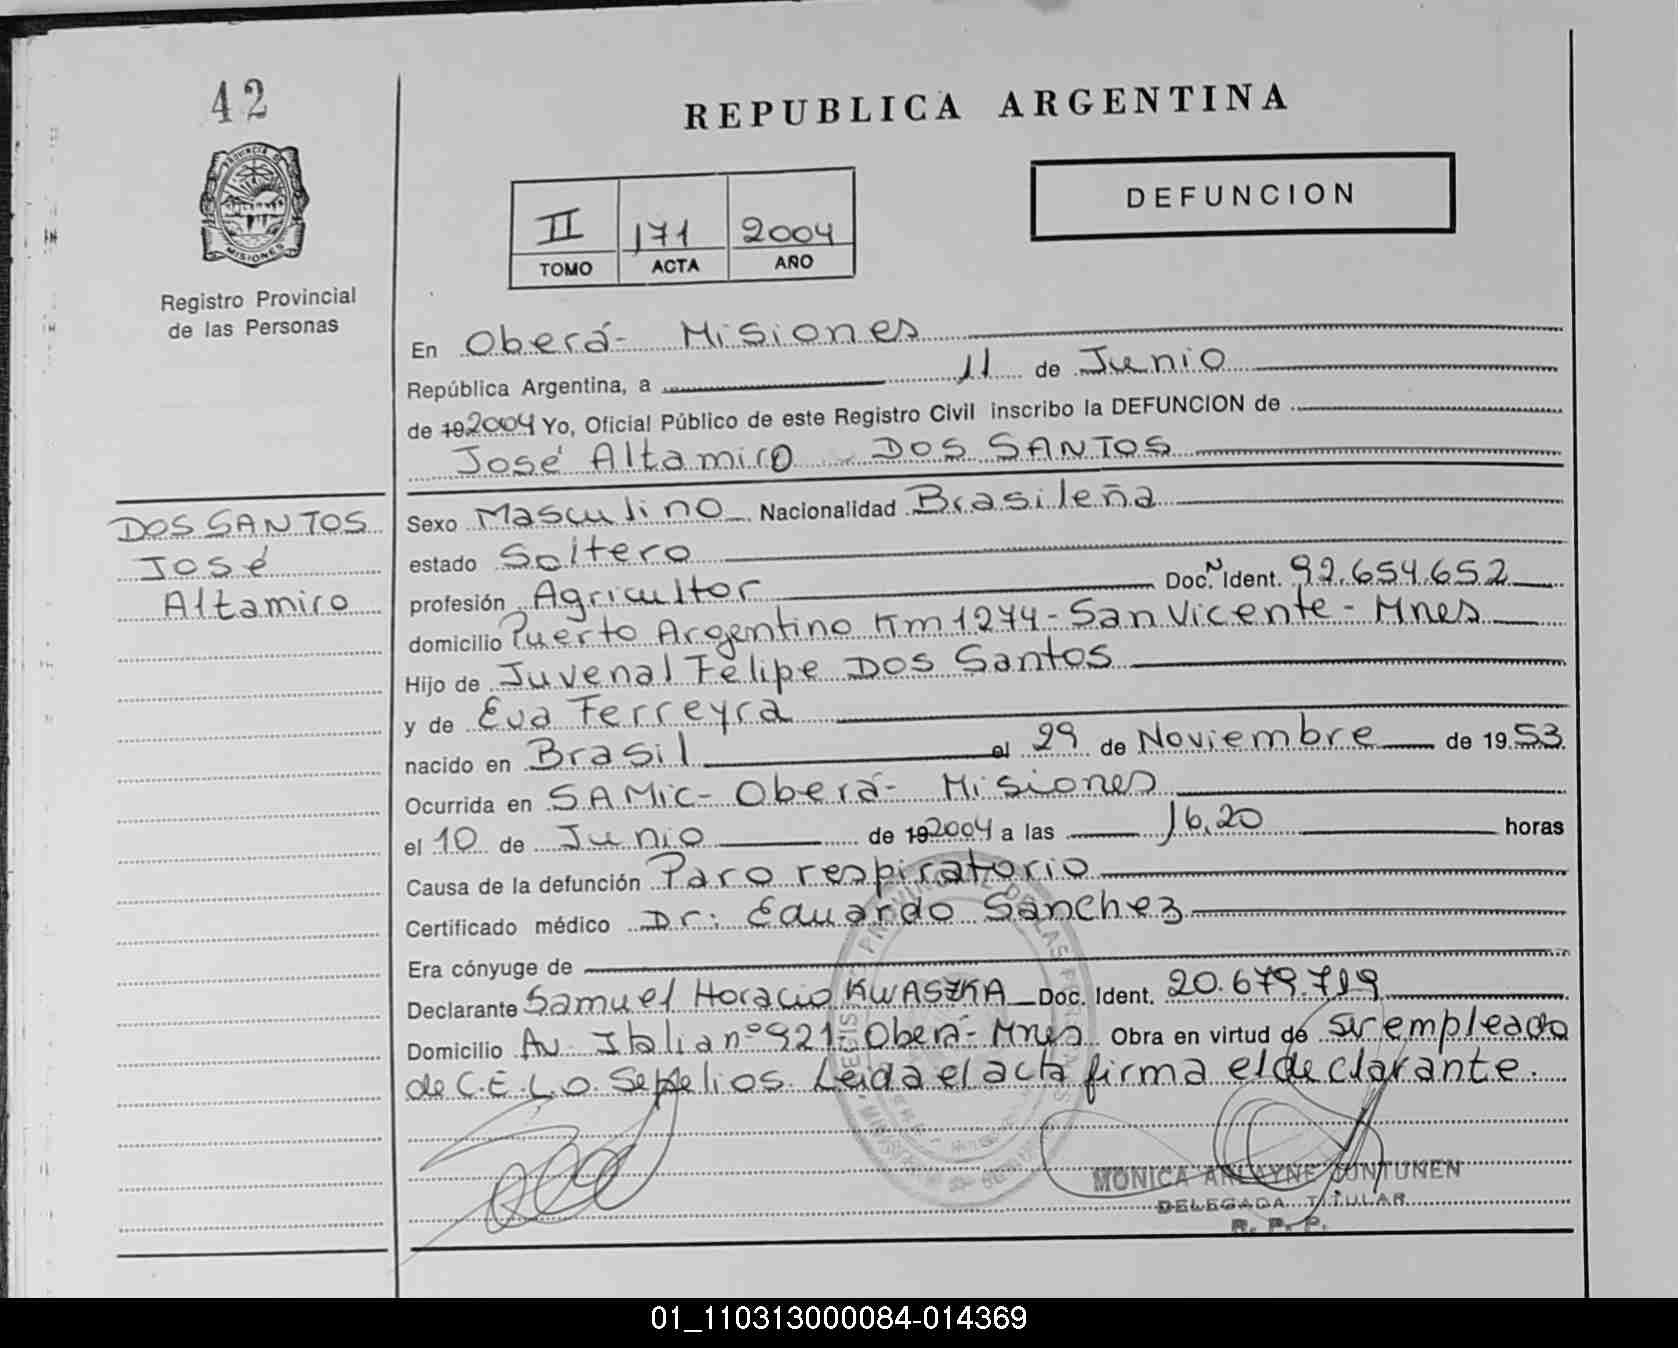 42
PROVINCIA DE
MISIONES
Registro Provincial
de las Personas
DOS SANTOS
José
Altamiro
REPUBLICA ARGENTINA
DEFUNCION
II 171 2004
TOMO ACTA AÑO
En Oberá- Misiones
República Argentina, a 11 de Junio
de 19 2004 Yo, Oficial Público de este Registro Civil inscribo la DEFUNCION de
José Altamiro DOS SANTOS
Sexo Masculino Nacionalidad Brasileña
estado Soltero
profesión Agricultor Doc. N Ident. 92.654.652
domicilio Puerto Argentino Km 1274 - San Vicente - Mnes
Hijo de Juvenal Felipe Dos Santos
y de Eva Ferreyra
nacido en Brasil el 29 de Noviembre de 1953
Ocurrida en SAMic- Oberá- Misiones
el 10 de Junio de 19 2004 a las 16,20 horas
Causa de la defunción Paro respiratorio
Certificado médico Dr: Eduardo Sanchez
Era cónyuge de
Declarante Samuel Horacio KWASZKA Doc. Ident. 20.679.719
Domicilio Av. Italia nº 921- Oberá- Mnes Obra en virtud de ser empleado
de C.E.L.O. Sepelios. Leída el acta firma el declarante.
MONICA
DELEGADA TITULAR
R. P. P.
01_110313000084-014369